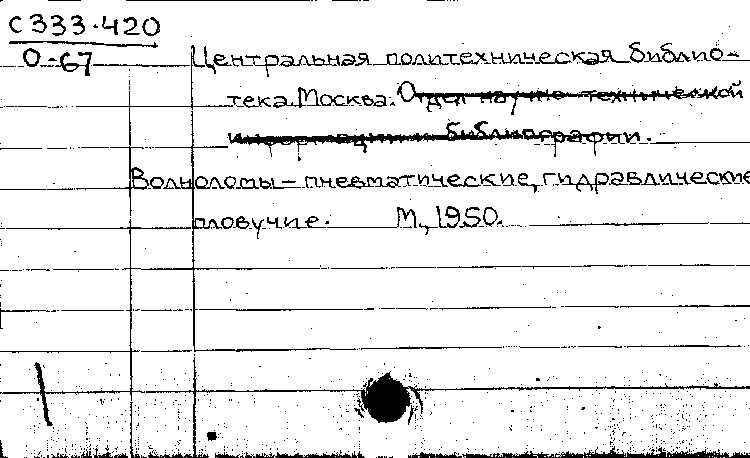 С333.420
О-67
Центральная политехническая библио-
тека. Москва. Отдел научно технической
информации и библиографии.
Волноломы – пневматические, гидравлические
пловучие. М., 1950.